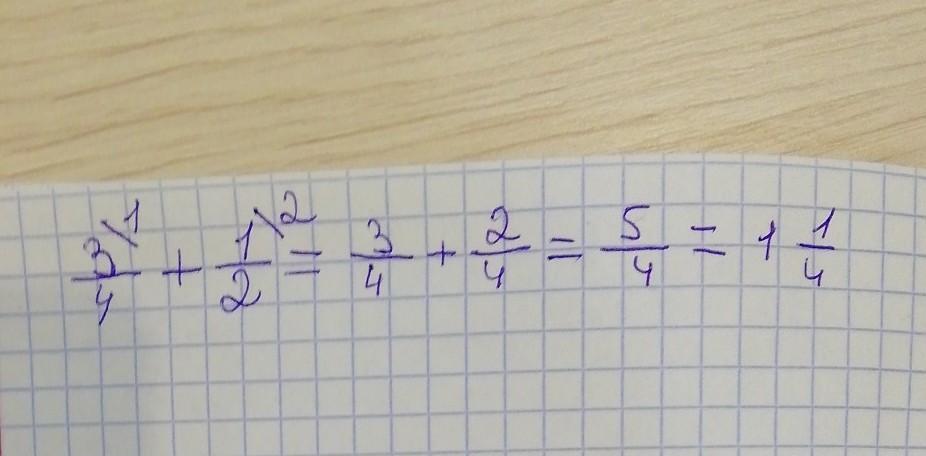 3\1/4 + 1\2/2 = 3/4 + 2/4 = 5/4 = 1 1/4